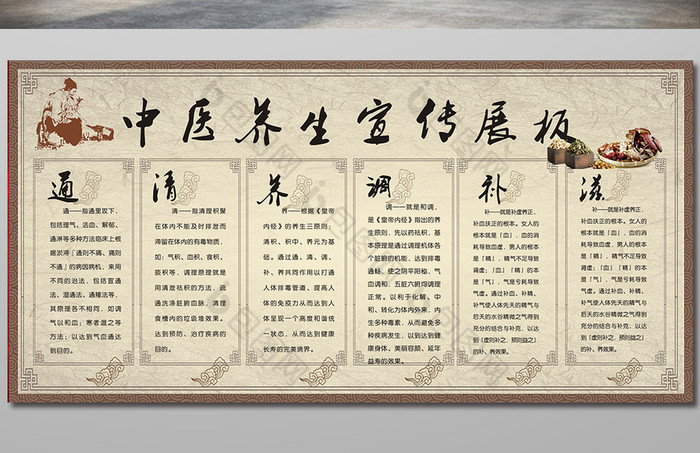 中医养生宣传展板
通
通——指通里攻下，
包括理气、活血、解郁、
通淋等多种方法临床上根
据淤滞「通则不痛、痛则
不通」的病因病机，采用
不同的治法，包括宣通
法、湿通法、通隆法等，
其原理各不相同，如调
气以和血；寒者温之等
方法；以达到气血通达
到目的。
清
清——指清理积聚
在体内不能及时排泄而
滞留在体内的有毒物质，
如：气积、血积、食积、
痰积等，调理原理就是
用清泄祛积的方法，疏
通洗涤脏腑血脉，清理
食槽内的垃圾堆效果。
达到预防、治疗疾病的
目的。
养
养——根据《皇帝
内经》的养生三原则：
清积、积中、养元为基
础。通过通、清、调、
补、养共同作用以打通
人体排毒管道、提高人
体的免疫力从而达到人
体呈现一个高度和谐统
一状态，从而达到健康
长寿的完美境界。
调
调——就是和调，
是《皇帝内经》指出的养
生原则，先以药祛积，基
本原理是通过调理机体各
个脏腑的机能，达到排毒
通畅，使之阴平阳秘，气
血调和；五脏六腑均调理
正常。以利于化解、中
和、转化为体内外来，内
生多种毒素，从而避免多
种疾病发生，以到达健
康身体、美丽容颜、延年
益寿的效果。
补
补——就是补虚养正、
补血扶正的根本。女人的
根本就是「血」，血的消
耗导致血虚，男人的根本
是「精」，精气不足导致
肾虚；「血」「精」的本
是「气」，气是亏耗导致
气虚。通过补血、补精、
补气使人体先天的精气与
后天的水谷精微之气得到
充分的结合与补充，以达
到「虚则补之，损则益之」
的补、养效果。
滋
补——就是补虚养正、
补血扶正的根本。女人的
根本就是「血」，血的消
耗导致血虚，男人的根本
是「精」，精气不足导致
肾虚；「血」「精」的本
是「气」，气是亏耗导致
气虚。通过补血、补精、
补气使人体先天的精气与
后天的水谷精微之气得到
充分的结合与补充，以达
到「虚则补之，损则益之」
的补、养效果。